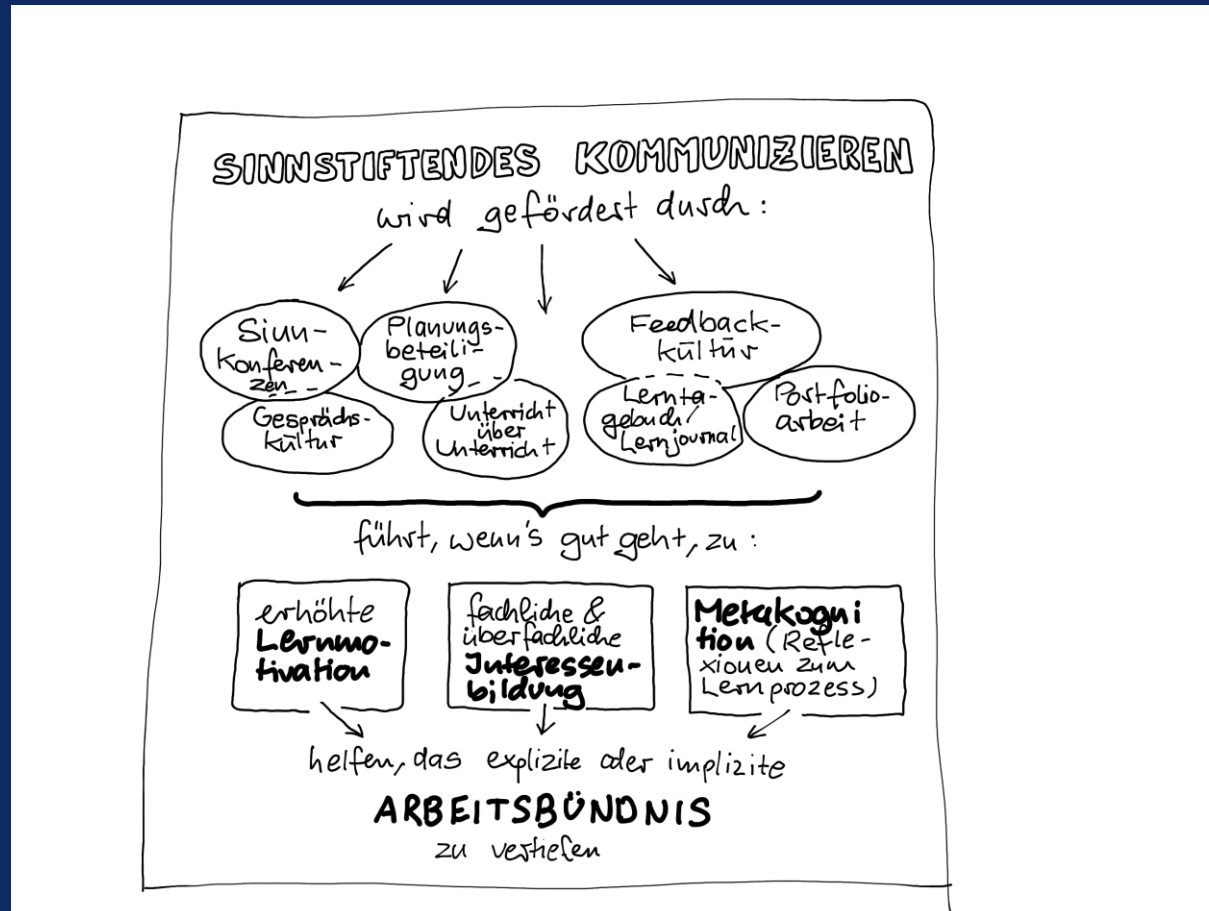 SINNSTIFTENDES KOMMUNIZIEREN
wird gefördert durch:
Sinn-
Konferen-
zen
Planungs-
beteili-
gung
Feedback-
kultur
Gesprächs-
kultur
Unterricht
über
Unterricht
Lernta-
gebuch/
Lernjournal
Portfolio-
arbeit
führt, wenn's gut geht, zu:
erhöhte
Lernmo-
tivation
fachliche &
überfachliche
Interessen-
bildung
Metakogni
tion (Refle-
xionen zum
Lernprozess)
helfen, das explizite oder implizite
ARBEITSBÜNDNIS
zu vertiefen